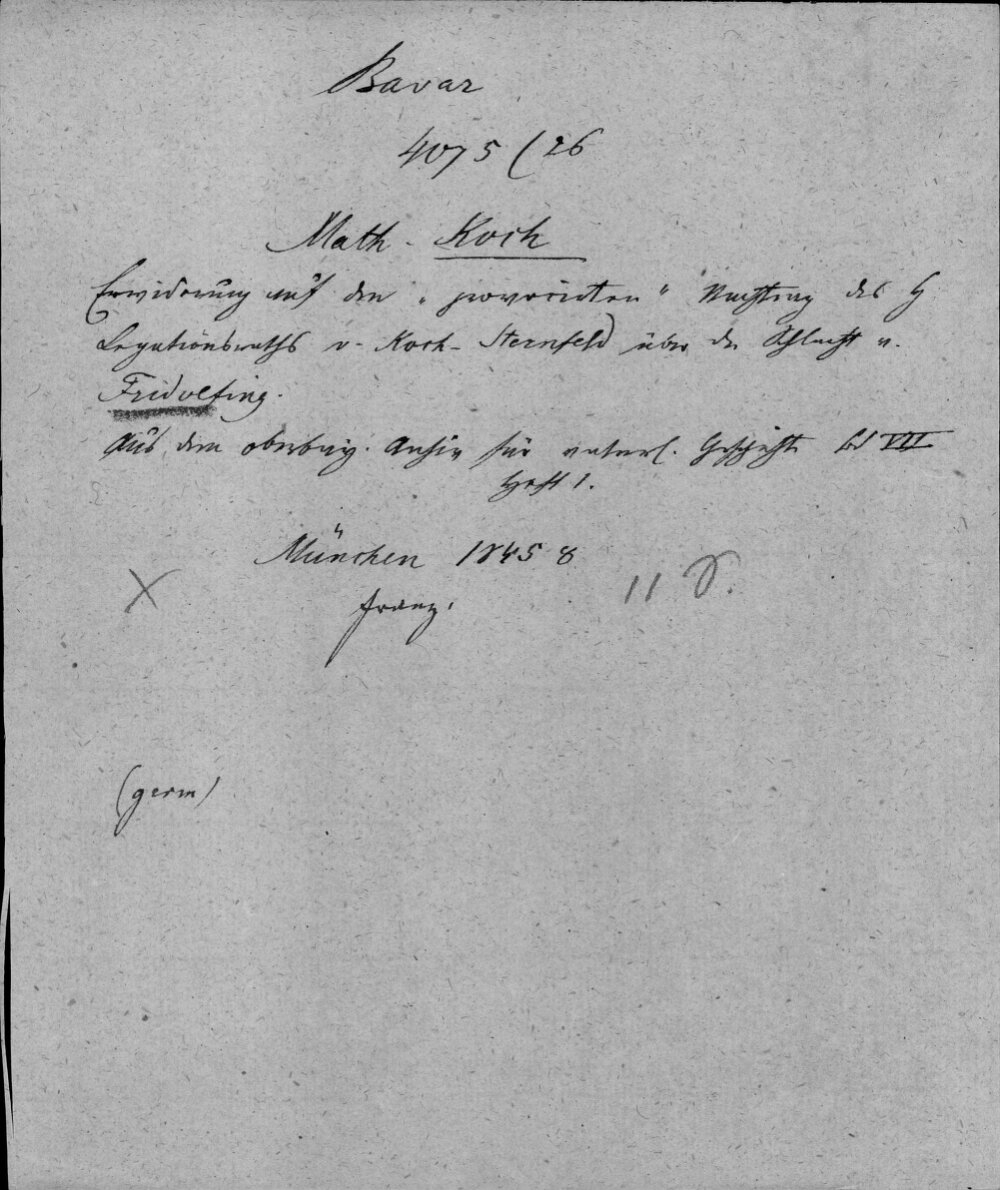 Bavar
4075 (26
Math. Koch
Erwiderung auf den „provocirten“ Nachtrag des H
Legationsraths v. Koch-Sternfeld über die Schlacht u.
Fridolfing.
Aus dem oberbayr. Archiv für vaterl. Geschichte Bd VII
Heft 1.
München 1845 8
Franz.
(germ)